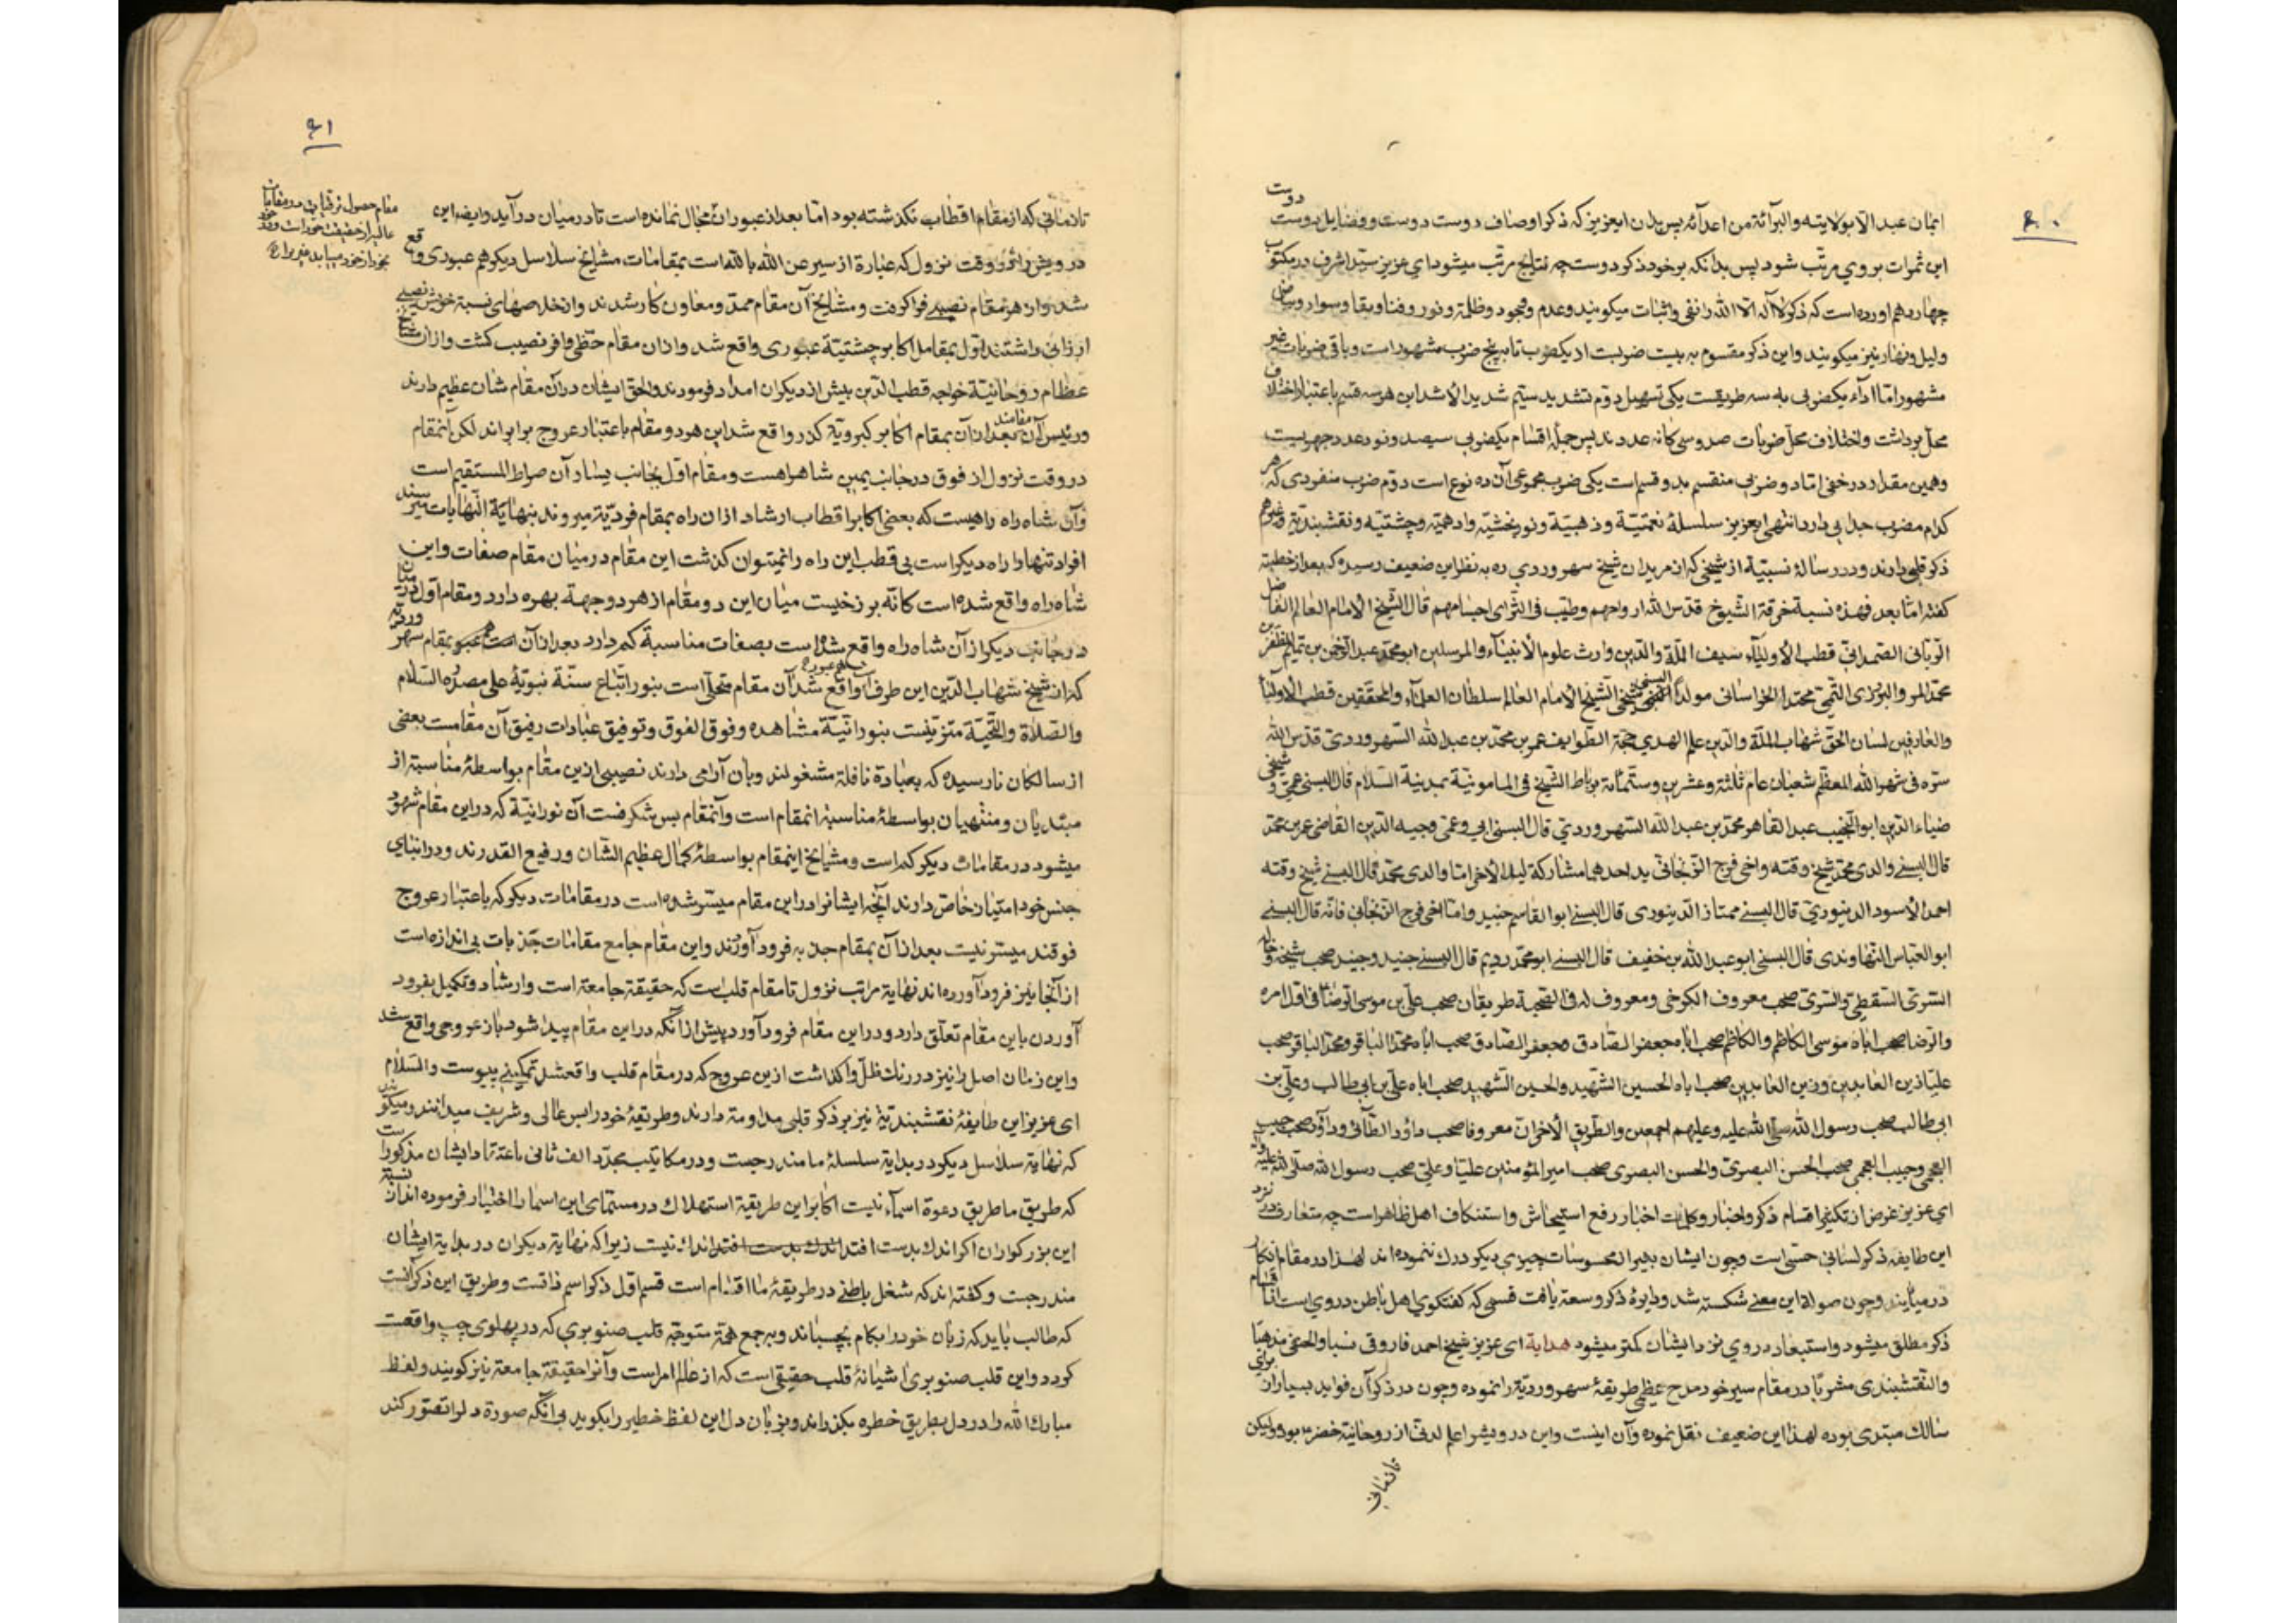 ۶۰
ایمان عبد الا بولایته والبرآئة من اعدآئه پس بدان ایعزیز که ذکر اوصاف دوست دوست و فضایل دوست دوست
این ثمرات بروی مرتب شود پس بدانکه بر خود ذکر دوست چه نتایج مرتب میشود ای عزیز سید اشرف در مکتوب
چهاردهم اورده است که ذکر لا اله الا الله را نفی و اثبات میگویند و عدم و وجود و ظلمة و نور و فنا و بقا و سواد و بیاض
ولیل و نهار نیز میگویند و این ذکر مقسوم به بیست ضربت از یکضرب تا به پنج ضرب مشهور است و باقی ضربات غیر
مشهور اما اداء یکضربی به سه طریقست یکی تسهیل دوم تشدید سیم شدید الاشد این هر سه قسم باعتبار اختلاف
محل برداشت و اختلاف محل ضربات صد و سی کانه عددند پس جمله اقسام یکضربی سیصد و نود عدد جهریست
وهمین مقدار در خفی اما دو ضربی منقسم بدو قسم است یکی ضرب مجموعی آن ده نوع است دوم ضرب منفردی که هر
کدام مضرب جدایی دارد انتهی ایعزیز سلسلهٔ نعمتیة و ذهبیة و نوربخشیة و ادهمیة و چشتیة و نقشبندیة و غیرهم
ذکر قلبی دارند و در رسالهٔ نسبتیة از شیخی که از مریدان شیخ سهروردی ره به نظر این ضعیف رسیده که بعد از خطبة
کفته اما بعد فهذه نسبة خرقة الشیوخ قدس الله ارواحهم وطیب فی الثری اجسامهم قال الشیخ الامام العالم الفاضل
الربانی الصمدانی قطب الاولیآء سیف الملة والدین وارث علوم الانبیآء والمرسلین ابو محمد عبد الرحمن بن
محمد الخراسانی مولدا البسنی شیخی الشیخ الامام العالم سلطان العلمآء والمحققین قطب الاولیآء
والعارفین لسان الحق شهاب الملة والدین علم الهدی حجة الطوایف عمر بن محمد بن عبد الله السهروردی قدس الله
سره فی شهر الله المعظم شعبان عام ثلثة وعشرین وستمائة برباط الشیخ فی المامونیة بمدینة السلام قال البسنی عمی و شیخی
ضیاء الدین ابو النجیب عبد القاهر محمد بن عبد الله السهروردی قال البسنی ابی وعمی وجیه الدین القاضی عمر بن محمد
قال البسنی والدی محمد شیخ وقته واخی فرج الزنجانی ید احدهما مشارکة لید الاخر اما والدی محمد قال البسنی شیخ وقته
احمد الاسود الدینوری قال البسنی ممتاز الدینوری قال البسنی ابو القاسم جنید واما اخی فرج الزنجانی فانه قال البسنی
ابو العباس النهاوندی قال البسنی ابو عبد الله بن خفیف قال البسنی ابو محمد رویم قال البسنی جنید وجنید صحب شیخه و خاله
السری السقطی والسری صحب معروف الکرخی ومعروف له فی الصحبة طریقان صحب علی بن موسی الرضا فی اول امره
والرضا صحب اباه موسی الکاظم والکاظم صحب اباه جعفر الصادق وجعفر الصادق صحب اباه محمد الباقر ومحمد الباقر صحب
علیا زین العابدین وزین العابدین صحب اباه الحسین الشهید والحسین الشهید صحب اباه علی بن ابی طالب وعلی بن
ابی طالب صحب رسول الله صلی الله علیه وعلیهم اجمعین والطریق الاخر ان معروفا صحب داؤد الطآئی وداؤد صحب حبیب
العجمی وحبیب العجمی صحب الحسن البصری والحسن البصری صحب امیر المؤمنین علیا وعلی صحب رسول الله صلی الله علیه واله
ای عزیز غرض از تکثیر اقسام ذکر و اخبار و کلمات اخبار رفع استیحاش و استنکاف اهل ظاهر است چه متعارف در نزد
این طایفه ذکر لسانی حسی است وچون ایشان بغیر المحسوسات چیزی دیکر درک ننموده اند لهذا در مقام انکار
در میآیند وچون صولة این معنی شکسته شد ودایرهٔ ذکر وسعة یافت قسمی که کفتکوی اهل باطن در وی است از اقسام
ذکر مطلق میشود و استبعاد در وی نزد ایشان کمتر میشود هدایة ای عزیز شیخ احمد فاروقی نسبا والحنفی مذهبا
والنقشبندی مشربا در مقام سیر خود مدح عظیمی طریقهٔ سهروردیة را نموده وچون در ذکر آن فواید بسیار از برای
سالک مبتدی بوده لهذا این ضعیف نقل نموده وآن اینست واین درویش را علم لدنی از روحانیة خضر ع بود ولیکن
تا زمانی
۶۱
تا زمانی که از مقام اقطاب نکذشته بود اما بعد از عبور ان مجال نمانده است تا در میان درآید وایضا این
درویش را در وقت نزول که عبارة از سیر عن الله بالله است بمقامات مشایخ سلاسل دیکر هم عبوری واقع
شد و از هر مقام نصیبی فرا کرفت ومشایخ آن مقام ممد ومعاون کار شدند واز خلاصهای نسبة خویش نصیبی
ارزانی داشتند اول بمقام اکابر چشتیة عبوری واقع شد وازان مقام حظی وافر نصیب کشت وازان مشایخ
عظام روحانیة خواجه قطب الدین بیش از دیکران امداد فرمودند والحق ایشان در آن مقام شان عظیم دارند
ورئیس آن مقامند بعد از آن بمقام اکابر کبرویة کذر واقع شد این هر دو مقام باعتبار عروج برابراند لکن آنمقام
در وقت نزول از فوق در جانب یمین شاهراهست ومقام اول بجانب یسار آن صراط المستقیم است
وآن شاه راه راهیست که بعضی اکابر اقطاب ارشاد ازان راه بمقام فردیة میروند بنهایة النهایات میرسند
افراد تنها را راه دیکر است بی قطب این راه را نمیتوان کذشت این مقام در میان مقام صفات واین
شاه راه واقع شده است کانه برزخیست میان این دو مقام از هر دو جهة بهره دارد ومقام اول
در جانب دیکر از آن شاه راه واقع شده است بصفات مناسبة کم دارد بعد از آن بمقام سهروردیه
که از شیخ شهاب الدین این طرف است عبور واقع شد آن مقام متحلی است بنور اتباع سنة نبویة علی مصدره السلام
والصلاة والتحیة متزینست بنورانیة مشاهده وفوق الفوق وتوفیق عبادات رفیق آن مقامست بعضی
از سالکان نارسیده که بعبادة نافلة مشغولند وبآن آرامی دارند نصیبی ازین مقام بواسطهٔ مناسبة از
مبتدیان ومنتهیان بواسطهٔ مناسبة انمقام است وآنمقام بس شکرفست آن نورانیة که در این مقام مشهود
میشود در مقامات دیکر کم است ومشایخ اینمقام بواسطهٔ کمال عظیم الشان ورفیع القدرند ودر ابنای
جنس خود امتیاز خاص دارند آنچه ایشانرا در این مقام میسر شده است در مقامات دیکر که باعتبار عروج
فوقند میسر نیست بعد از آن بمقام جذبه فرود آوردند واین مقام جامع مقامات جذبات بی اندازه است
از آنجا نیز فرود آورده اند نهایة مراتب نزول تا مقام قلب است که حقیقة جامعة است وارشاد وتکمیل بفرود
آوردن باین مقام تعلق دارد ودر این مقام فرود آورد پیش از آنکه در این مقام پیدا شود باز عروجی واقع شد
واین زمان اصل را نیز در رنک ظل واکذاشت ازین عروج که در مقام قلب واقعشد تمکینی پیوست والسلام
ای عزیز این طایفهٔ نقشبندیة نیز بر ذکر قلبی مداومة دارند وطریقهٔ خود را بس عالی وشریف میدانند ومیکویند
که نهایة سلاسل دیکر در بدایة سلسلهٔ ما مندرجست ودر مکاتیب مجدد الف ثانی باعتقاد ایشان مذکور است
که طریق ما طریق دعوة اسمآء نیست اکابر این طریقة استهلاک در مسمای این اسما را اختیار فرموده اند از نسبة
این بزرکواران اکر اندک بدست افتد اندک نیست زیرا که نهایة دیکران در بدایة ایشان
مندرجست وکفته اند که شغل باطنی در طریقهٔ ما اقسام است قسم اول ذکر اسم ذاتست وطریق این ذکر آنست
که طالب باید که زبان خود را بکام بچسباند وبه جمع همة متوجه قلب صنوبری که در پهلوی چپ واقعست
کردد واین قلب صنوبری اشیانهٔ قلب حقیقی است که از عالم امر است وآنرا حقیقة جامعة نیز کویند ولفظ
مبارک الله را در دل بطریق خطره بکذراند وبزبان دل این لفظ خطیر را بکوید بی آنکه صورة دل را تصور کند